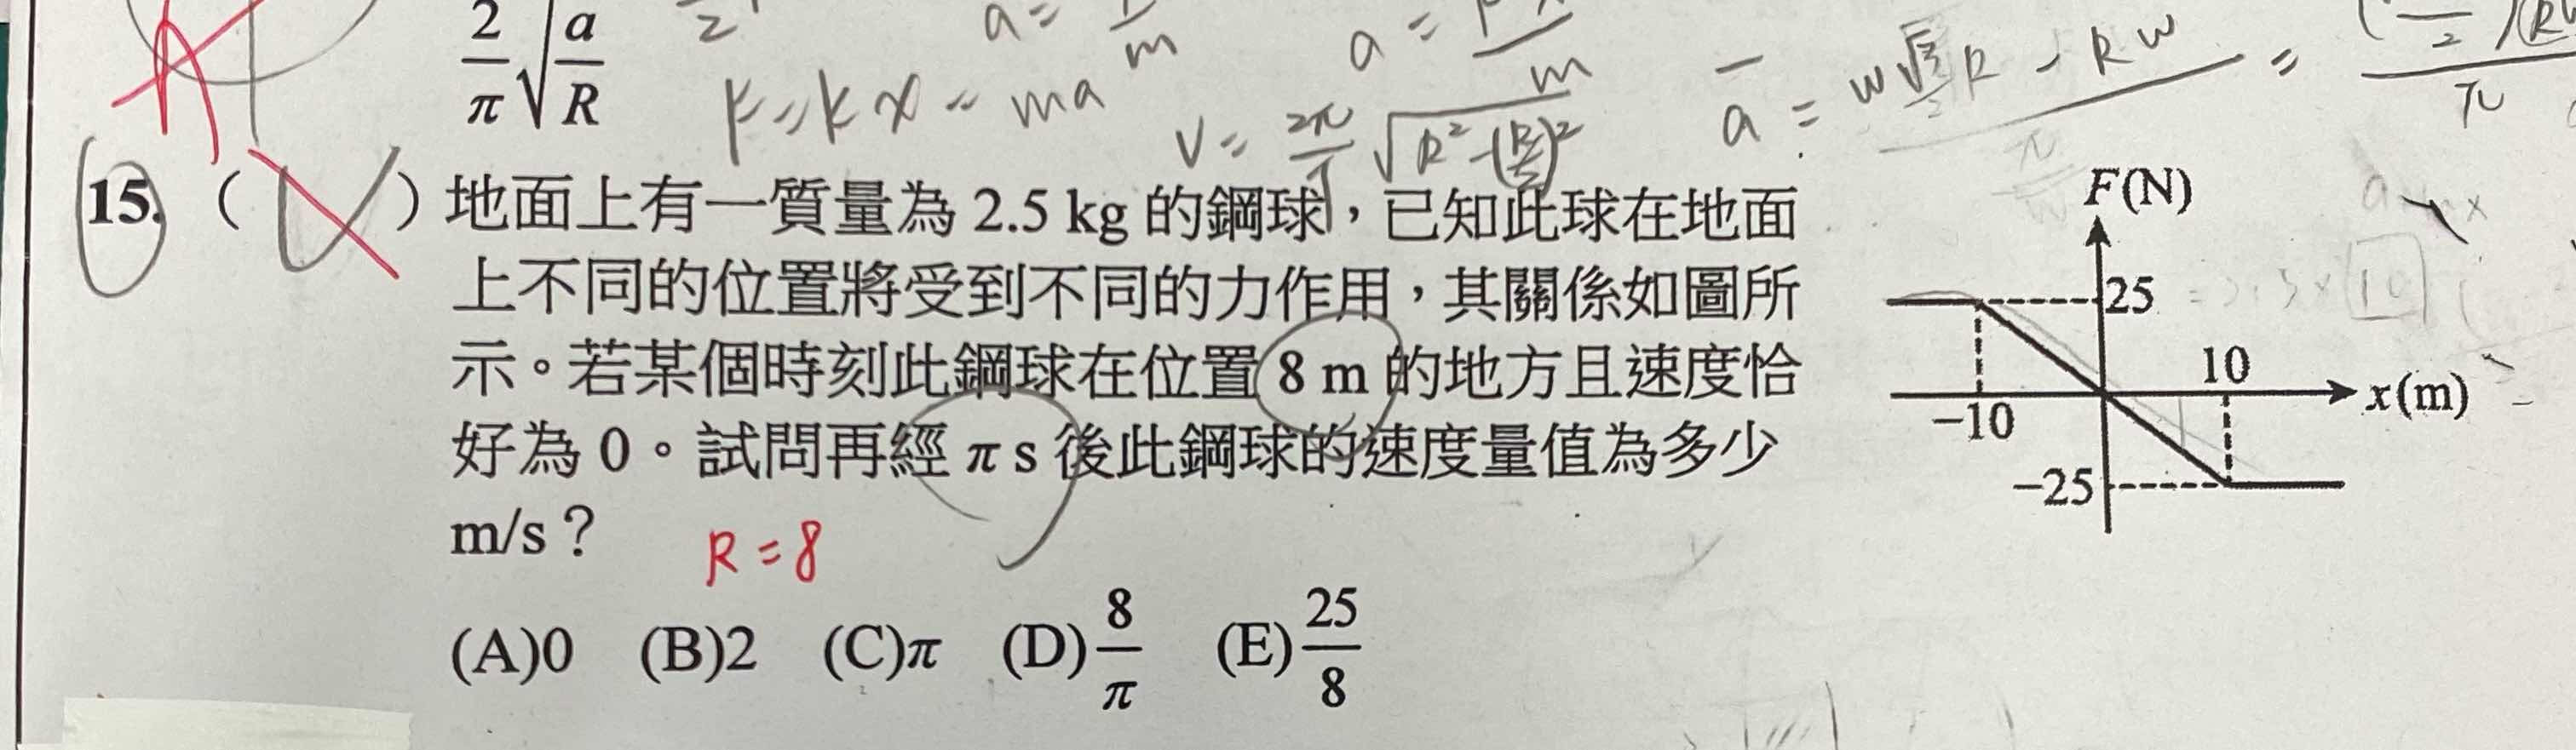 2/π √(a/R)
a =
m
a =
m
F = kx = ma
V = 2π/T √(R² - (R/2)²)
a =
π
15. ( ) 地面上有一質量為 2.5 kg 的鋼球，已知此球在地面
上不同的位置將受到不同的力作用，其關係如圖所
示。若某個時刻此鋼球在位置 8 m 的地方且速度恰
好為 0。試問再經 π s 後此鋼球的速度量值為多少
m/s？
R = 8
(A)0 (B)2 (C)π (D)8/π (E)25/8
F(N)
25
10
x(m)
−10
−25